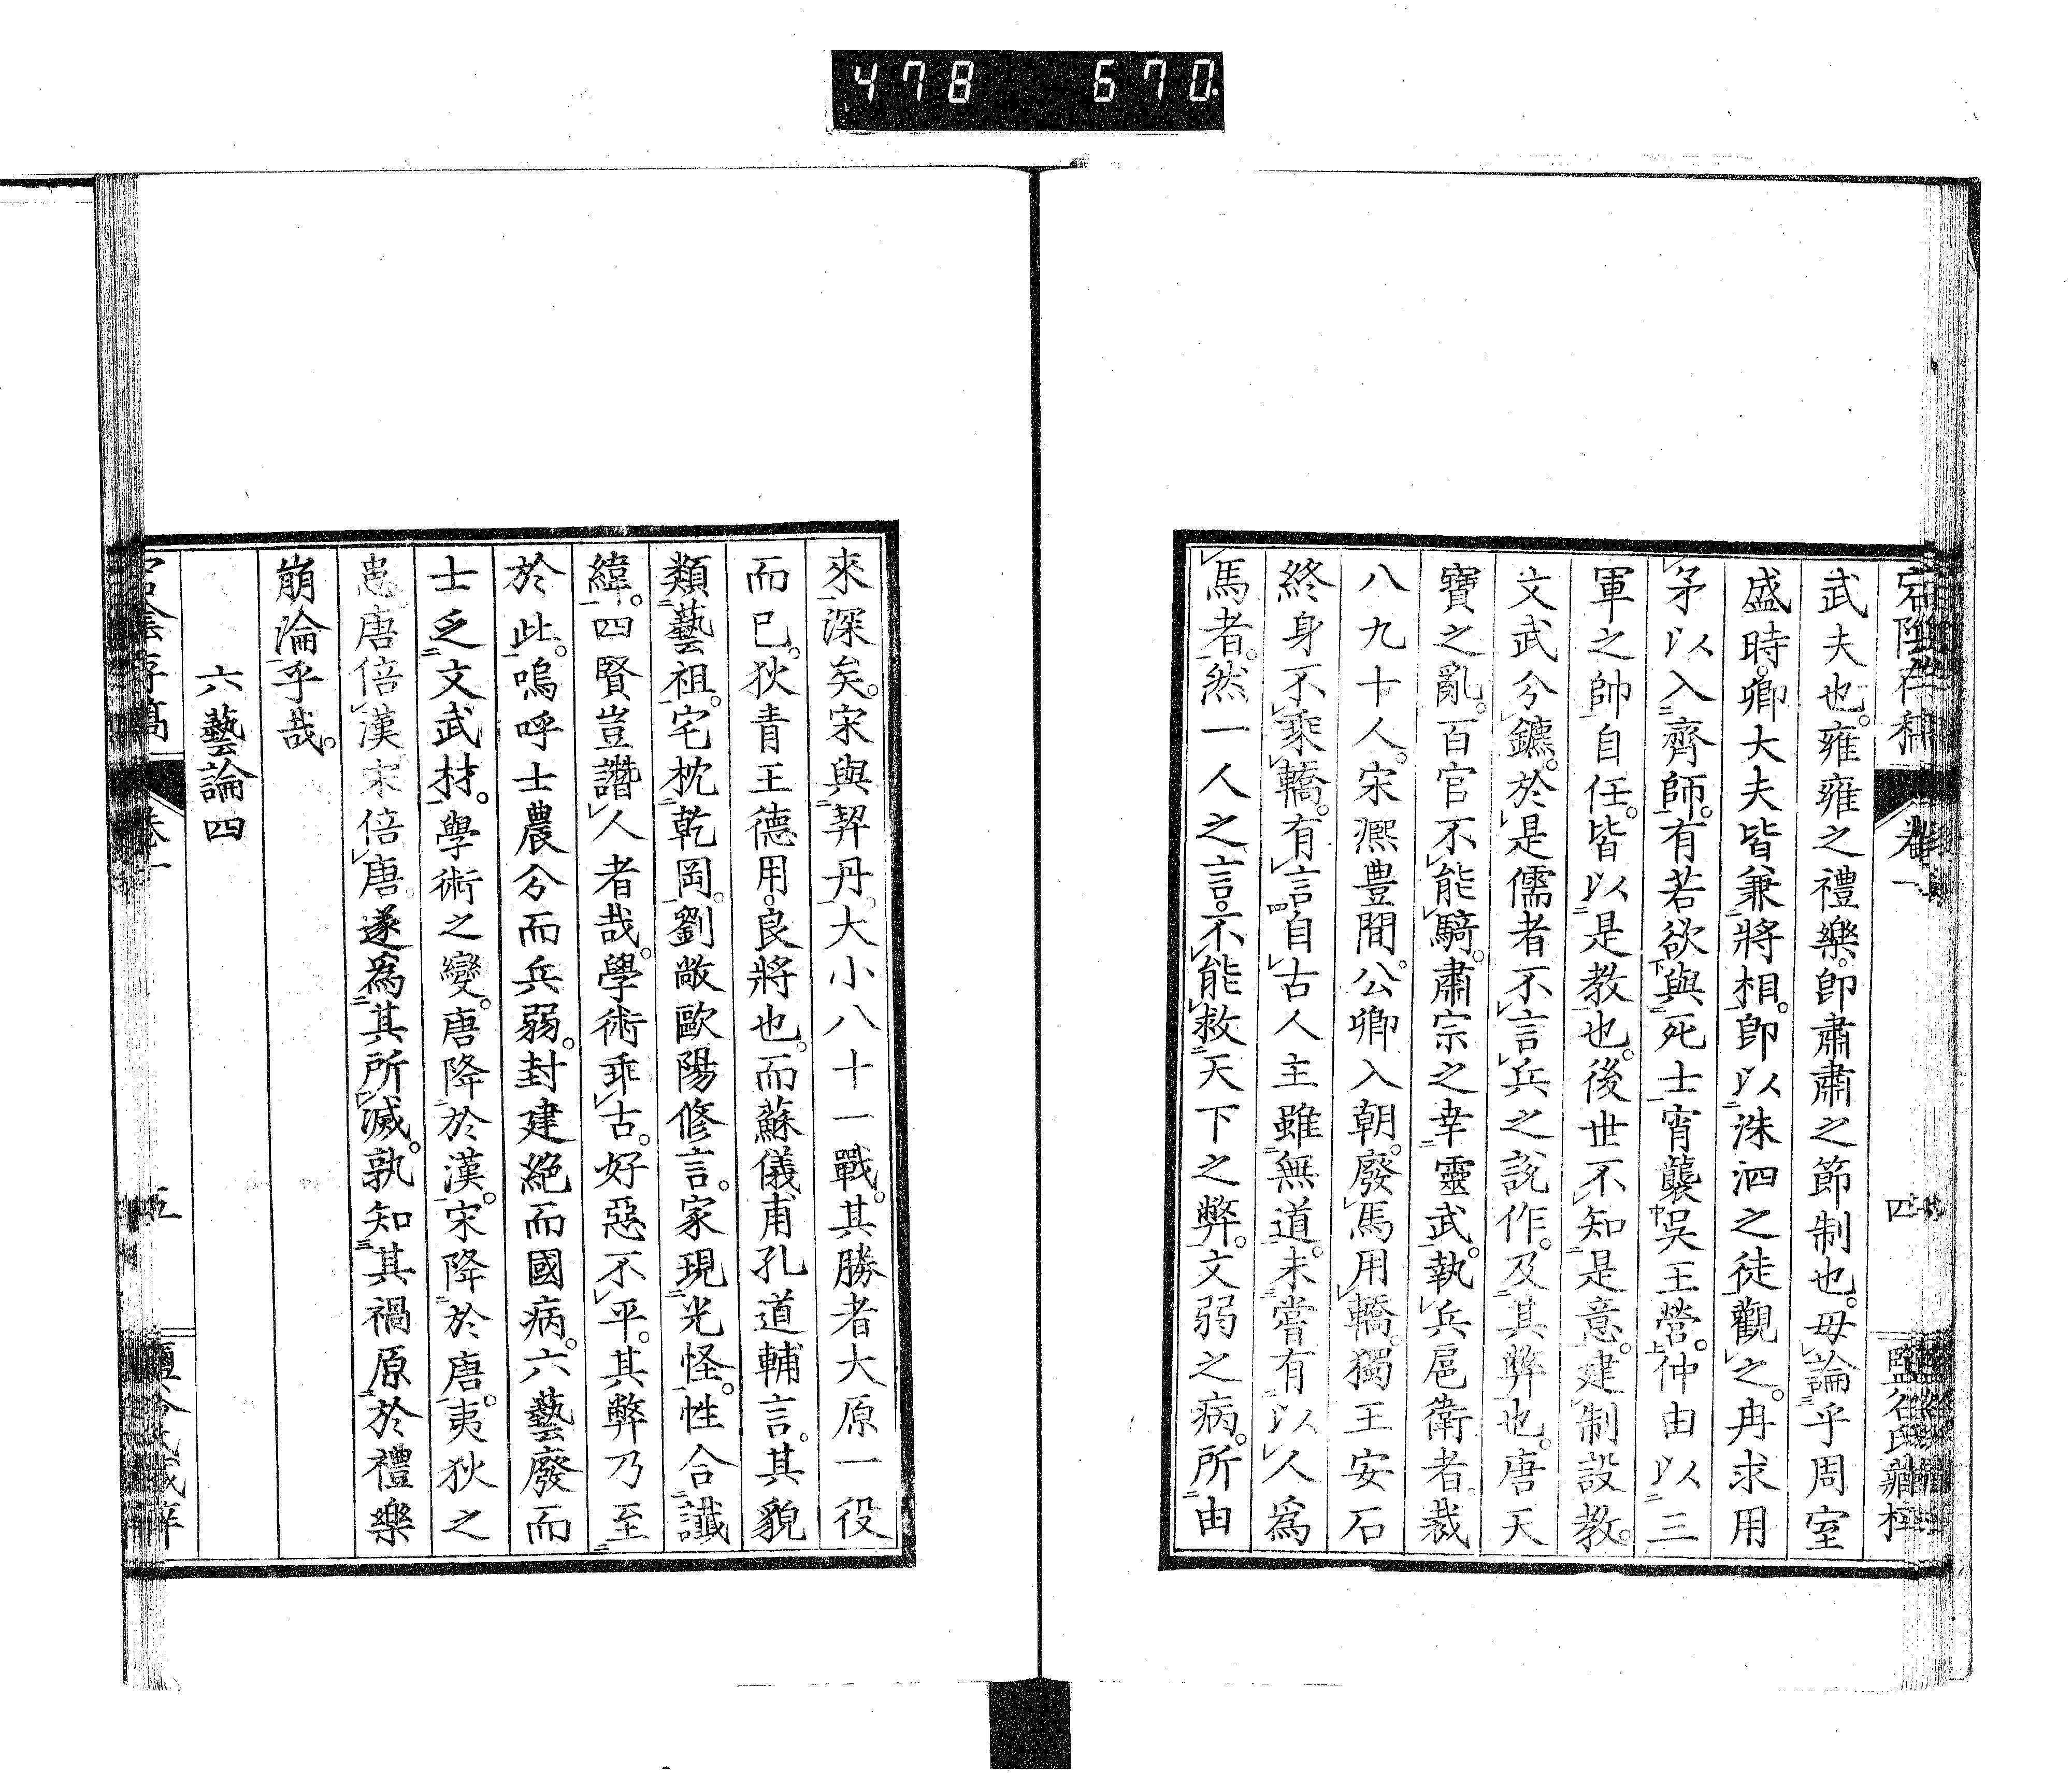 478 670.
宕陰存稿 卷一 四
武夫也。雍雍之禮樂。卽肅肅之節制也。毋論乎周室
盛時。卿大夫皆兼將相。卽以洙泗之徒觀之。冉求用
矛以入齊師。有若欲與死士宵襲吳王營。仲由以三
軍之帥自任。皆以是教也。後世不知是意。建制設教。
文武分鑣。於是儒者不言兵之說作。及其弊也。唐天
寶之亂。百官不能騎。肅宗之幸靈武。執兵扈衛者。裁
八九十人。宋熈豊間。公卿入朝。廢馬用轎。獨王安石
終身不乘轎。有言自古人主雖無道。未嘗有以人爲
馬者。然一人之言。不能救天下之弊。文弱之病。所由
來深矣。宋與契丹。大小八十一戰。其勝者大原一役
而已。狄青王德用。良將也。而蘇儀甫孔道輔言。其貌
類藝祖。宅枕乾岡。劉敞歐陽修言。家現光怪。性合讖
緯。四賢豈譖人者哉。學術乖古。好惡不平。其弊乃至
於此。嗚呼士農分而兵弱。封建絕而國病。六藝廢而
士乏文武材。學術之變。唐降於漢。宋降於唐。夷狄之
患。唐倍漢宋倍唐。遂爲其所滅。孰知其禍原於禮樂
崩淪乎哉。
六藝論四
宕陰存稿 卷一 五